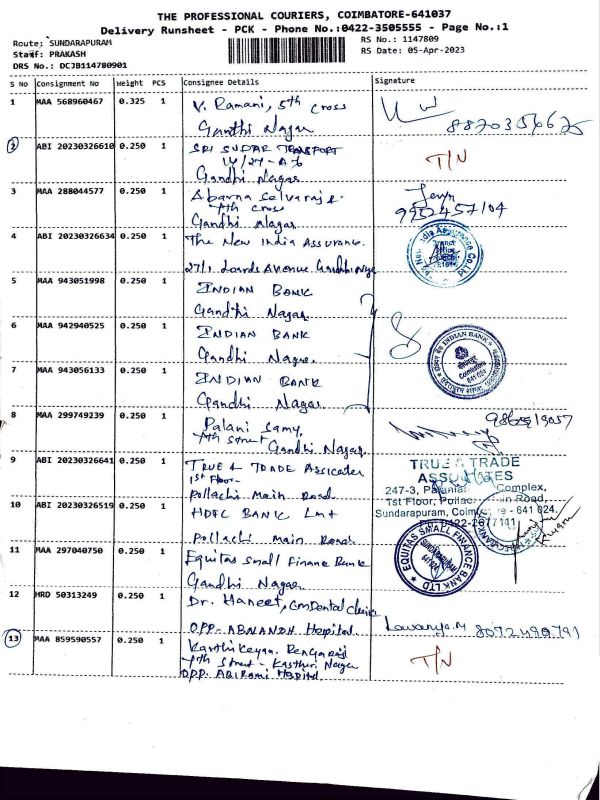 THE PROFESSIONAL COURIERS, COIMBATORE-641037
Delivery Runsheet - PCK - Phone No.:0422-3505555 - Page No.:1
Route; SUNDARAPURAM
RS No.: 1147809
Staff: PRAKASH
RS Date: 05-Apr-2023
DRS No.: DCJB114780901
S No Consignment No Weight PCS Consignee Details Signature
1 MAA 568960467 0.325 1 V. Ramani, 5th Cross
Gandhi Nagar
2 ABI 20230326610 0.250 1 SRI SUDAR TRANSPORT T/N
Gandhi Nagar
3 MAA 288044577 0.250 1 Abarna Selvaraj
7th Cross
Gandhi Nagar
9952457104
4 ABI 20230326634 0.250 1 The New India Assurance.
27/1 Lords Avenue Gandhi Nagar
5 MAA 943051998 0.250 1 INDIAN BANK
Gandhi Nagar
6 MAA 942940525 0.250 1 INDIAN BANK
Gandhi Nagar.
INDIAN BANK
Coimbatore
7 MAA 943056133 0.250 1 INDIAN BANK
Gandhi Nagar
8 MAA 299749239 0.250 1 Palani Samy,
7th Street Gandhi Nagar
9 ABI 20230326641 0.250 1 TRUE & TRADE Assicates
1st Floor-
Pollachi Main Road
TRUE & TRADE
ASSOCIATES
247-3, Complex,
1st Floor, Pollachi Main Road,
Sundarapuram, Coimbatore - 641 024.
Ph: 0422-2677111
10 ABI 20230326519 0.250 1 HDFC BANK Lmt
Pollachi Main Road.
11 MAA 297040750 0.250 1 Equitas Small Finane Bank
Gandhi Nagar
EQUITAS SMALL FINANCE BANK LTD
SUNDARAPURAM
12 HRD 50313249 0.250 1 Dr. Haneet, GmDental Clinic
OPP- ABNANDH Hospital.
Lavanya.M
13 MAA 859590557 0.250 1 Karthikeyan. Rengaraj T/N
7th Street - Kasthuri Nagar
OPP. ABIRAMI Hospital